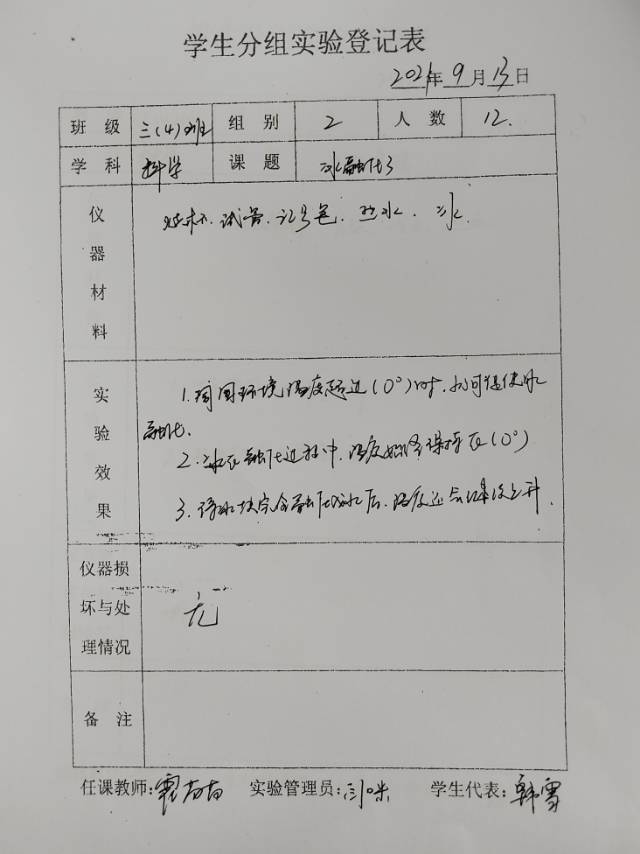 学生分组实验登记表
2021年9月13日
班级 三(4)班 组别 2 人数 12.
学科 科学 课题 冰融化了
仪器材料 烧杯、试管、记号笔、热水、冰
实验效果 1.周围环境温度超过(0°)时,就可能使冰
融化.
2.冰在融化过程中,温度始终保持在(0°)
3.待冰块完全融化成水后,温度还会继续上升.
仪器损坏与处理情况 无
备注
任课教师: 实验管理员: 学生代表:韩雪